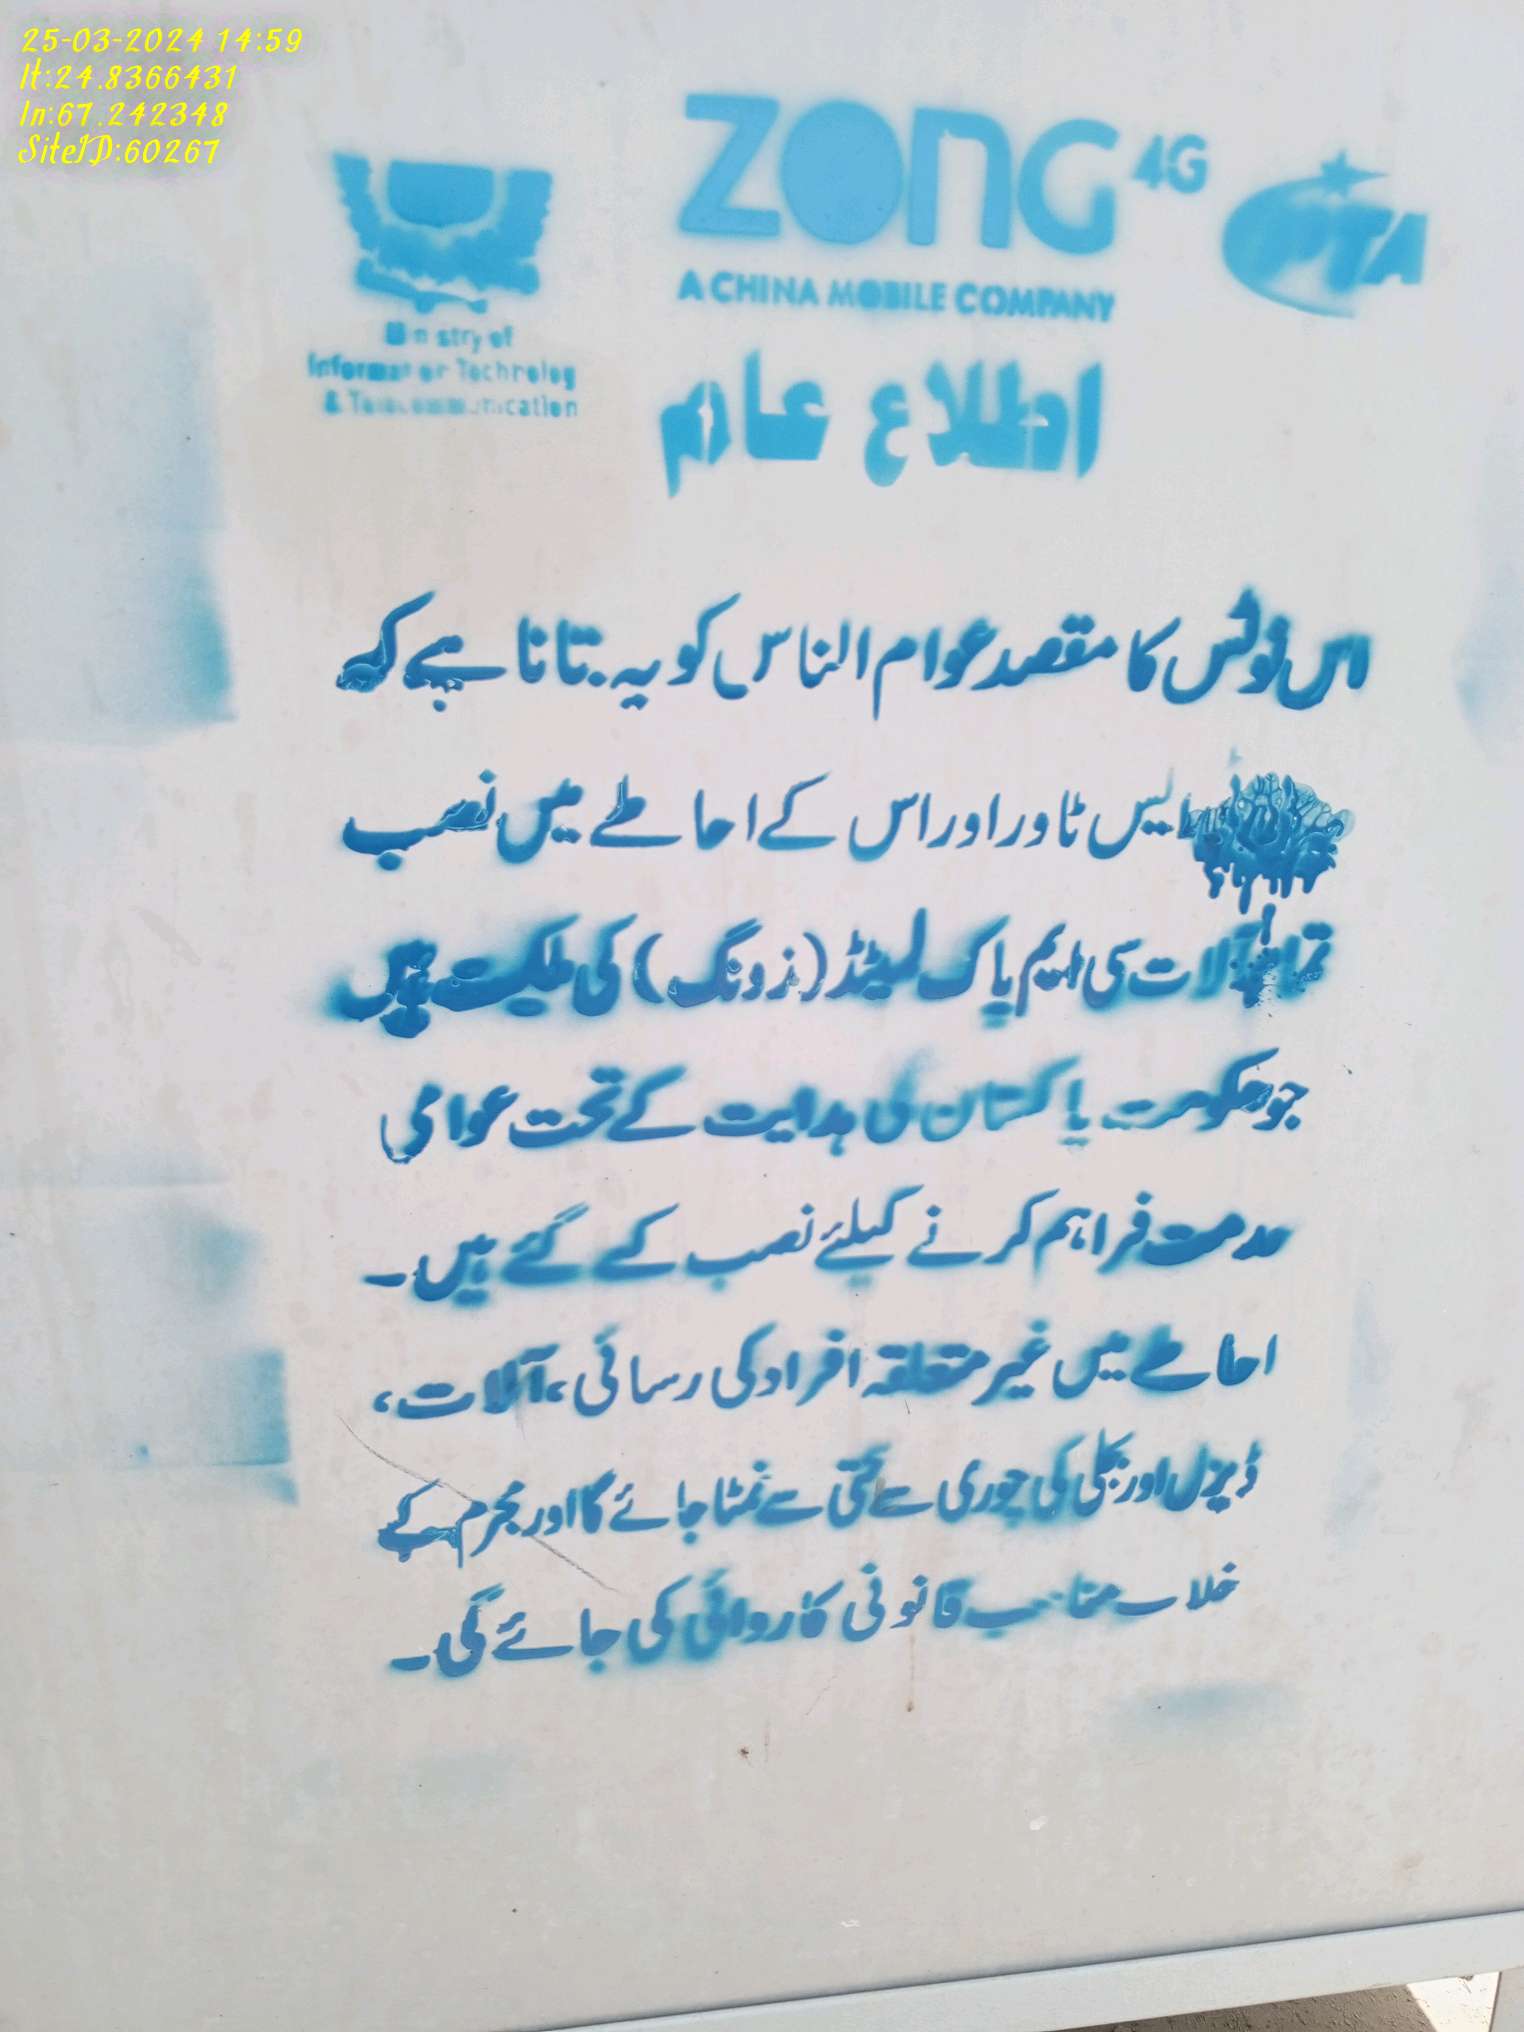 25-03-2024 14:59
lt:24.8366431
ln:67.242348
SiteID:60267
ZONG 4G
PTA
A CHINA MOBILE COMPANY
Ministry of
Information Technolog
& Telecommunication
اطلاع عام
اس نوٹس کا مقصد عوام الناس کو یہ بتانا ہے کہ
ایس ٹاور اور اس کے احاطے میں نصب
تمام آلات سی ایم پاک لمیٹڈ (زونگ) کی ملکیت ہیں
جو حکومت پاکستان کی ہدایت کے تحت عوامی
خدمت فراہم کرنے کیلئے نصب کے گئے ہیں۔
احاطے میں غیر متعلقہ افراد کی رسائی، آلات،
ڈیزل اور بجلی کی چوری سے سختی سے نمٹا جائے گا اور مجرم کے
خلاف مناسب قانونی کاروائی کی جائے گی۔